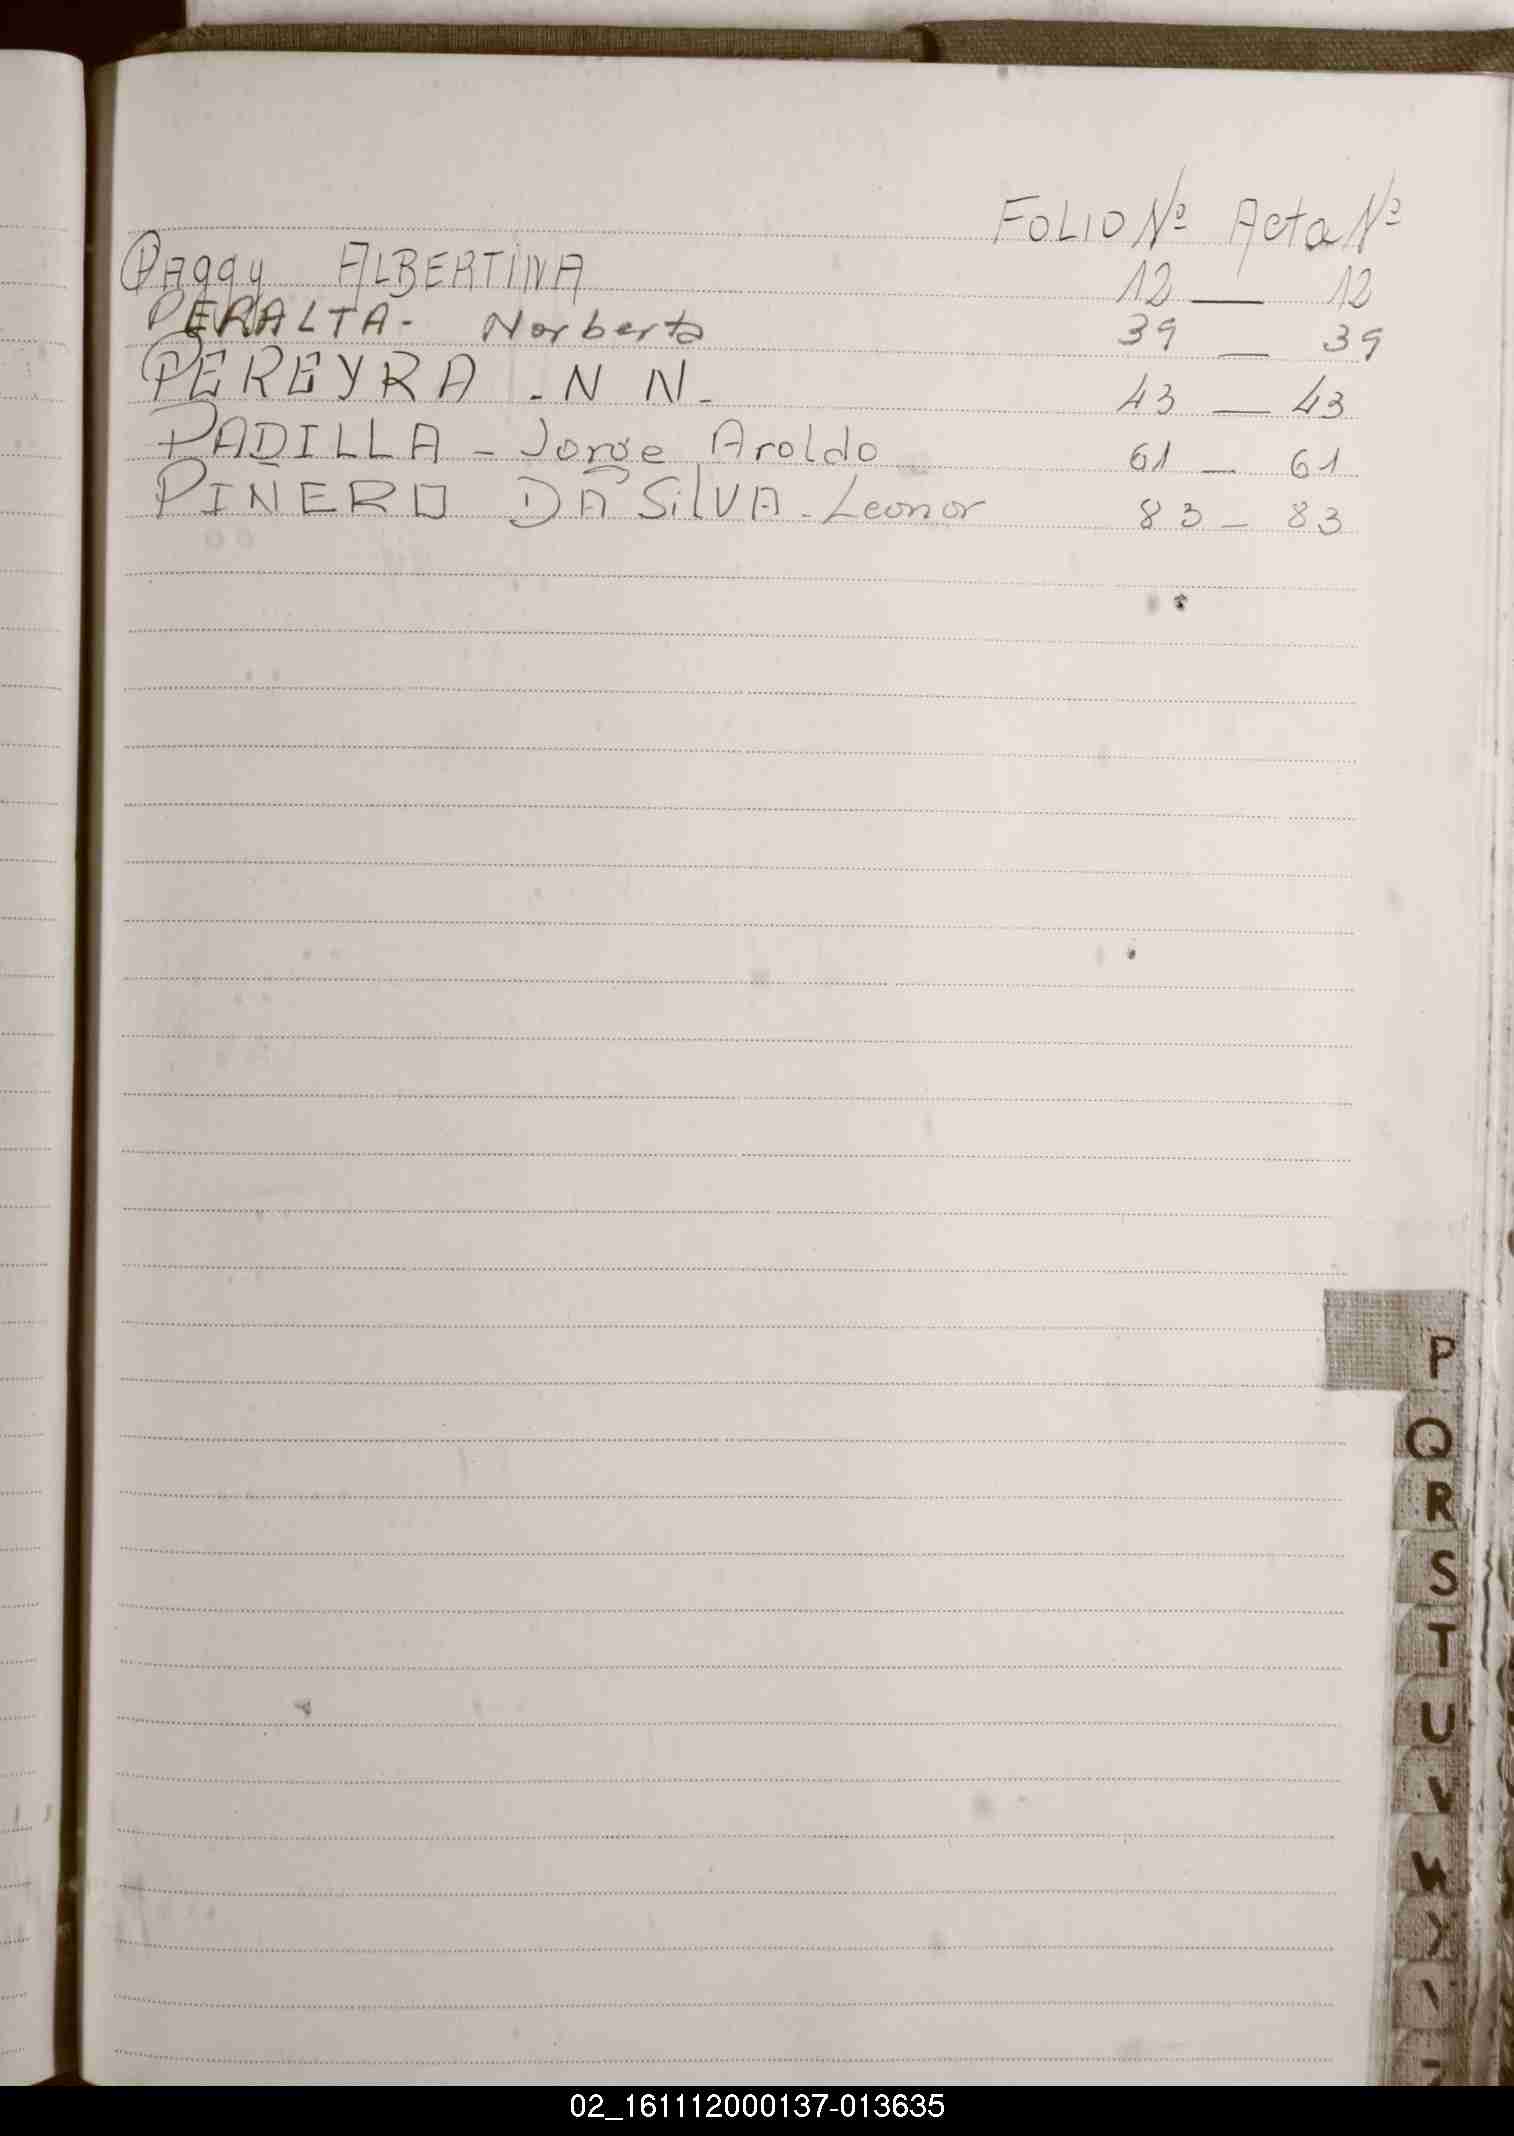 FOLIO Nº Acta Nº
Paggy ALBERTINA 12 — 12
PERALTA - Norberto 39 — 39
PEREYRA - N N - 43 — 43
PADILLA - Jorge Aroldo 61 — 61
PIÑERO DA SilVA - Leonor 83 - 83
P
Q
R
S
T
U
V
02_161112000137-013635